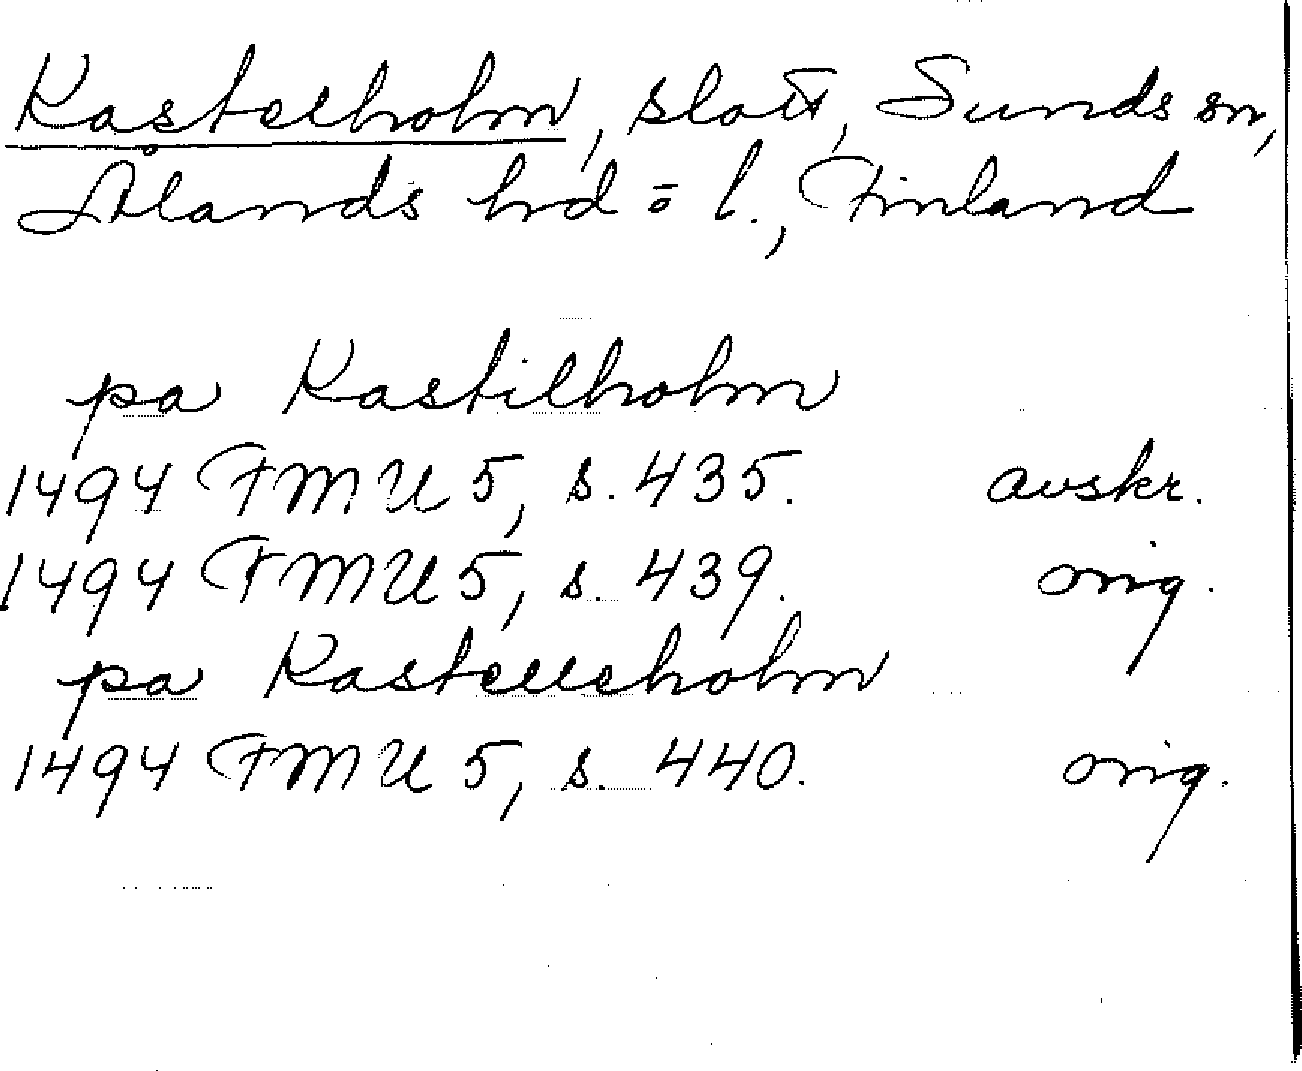 Kastelholm, slott, Sunds sn,
Ålands hd = l., Finland
pa Kastilholm
1494 FMU 5, s. 435. avskr.
1494 FMU 5, s. 439. orig.
pa Kastelleholm
1494 FMU 5, s. 440. orig.